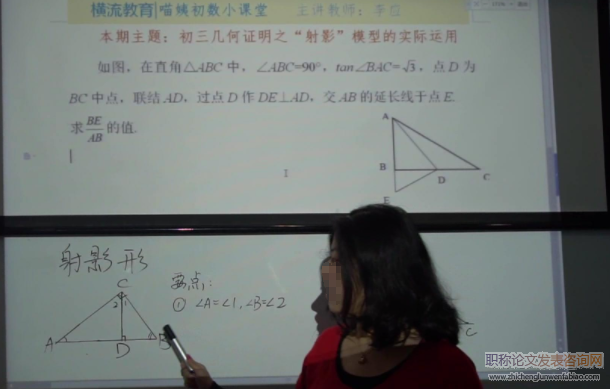 横流教育|喵姨初数小课堂 主讲教师：李应
本期主题：初三几何证明之“射影”模型的实际运用
如图，在直角△ABC中，∠ABC=90°，tan∠BAC=√3，点D为
BC中点，联结AD，过点D作DE⊥AD，交AB的延长线于点E.
求BE/AB的值.
A
B
D
C
E
射影形
C
要点：
① ∠A=∠1，∠B=∠2
2
1
A
D
B
C
职称论文发表咨询网
www.zhichenglunwenfabiao.com